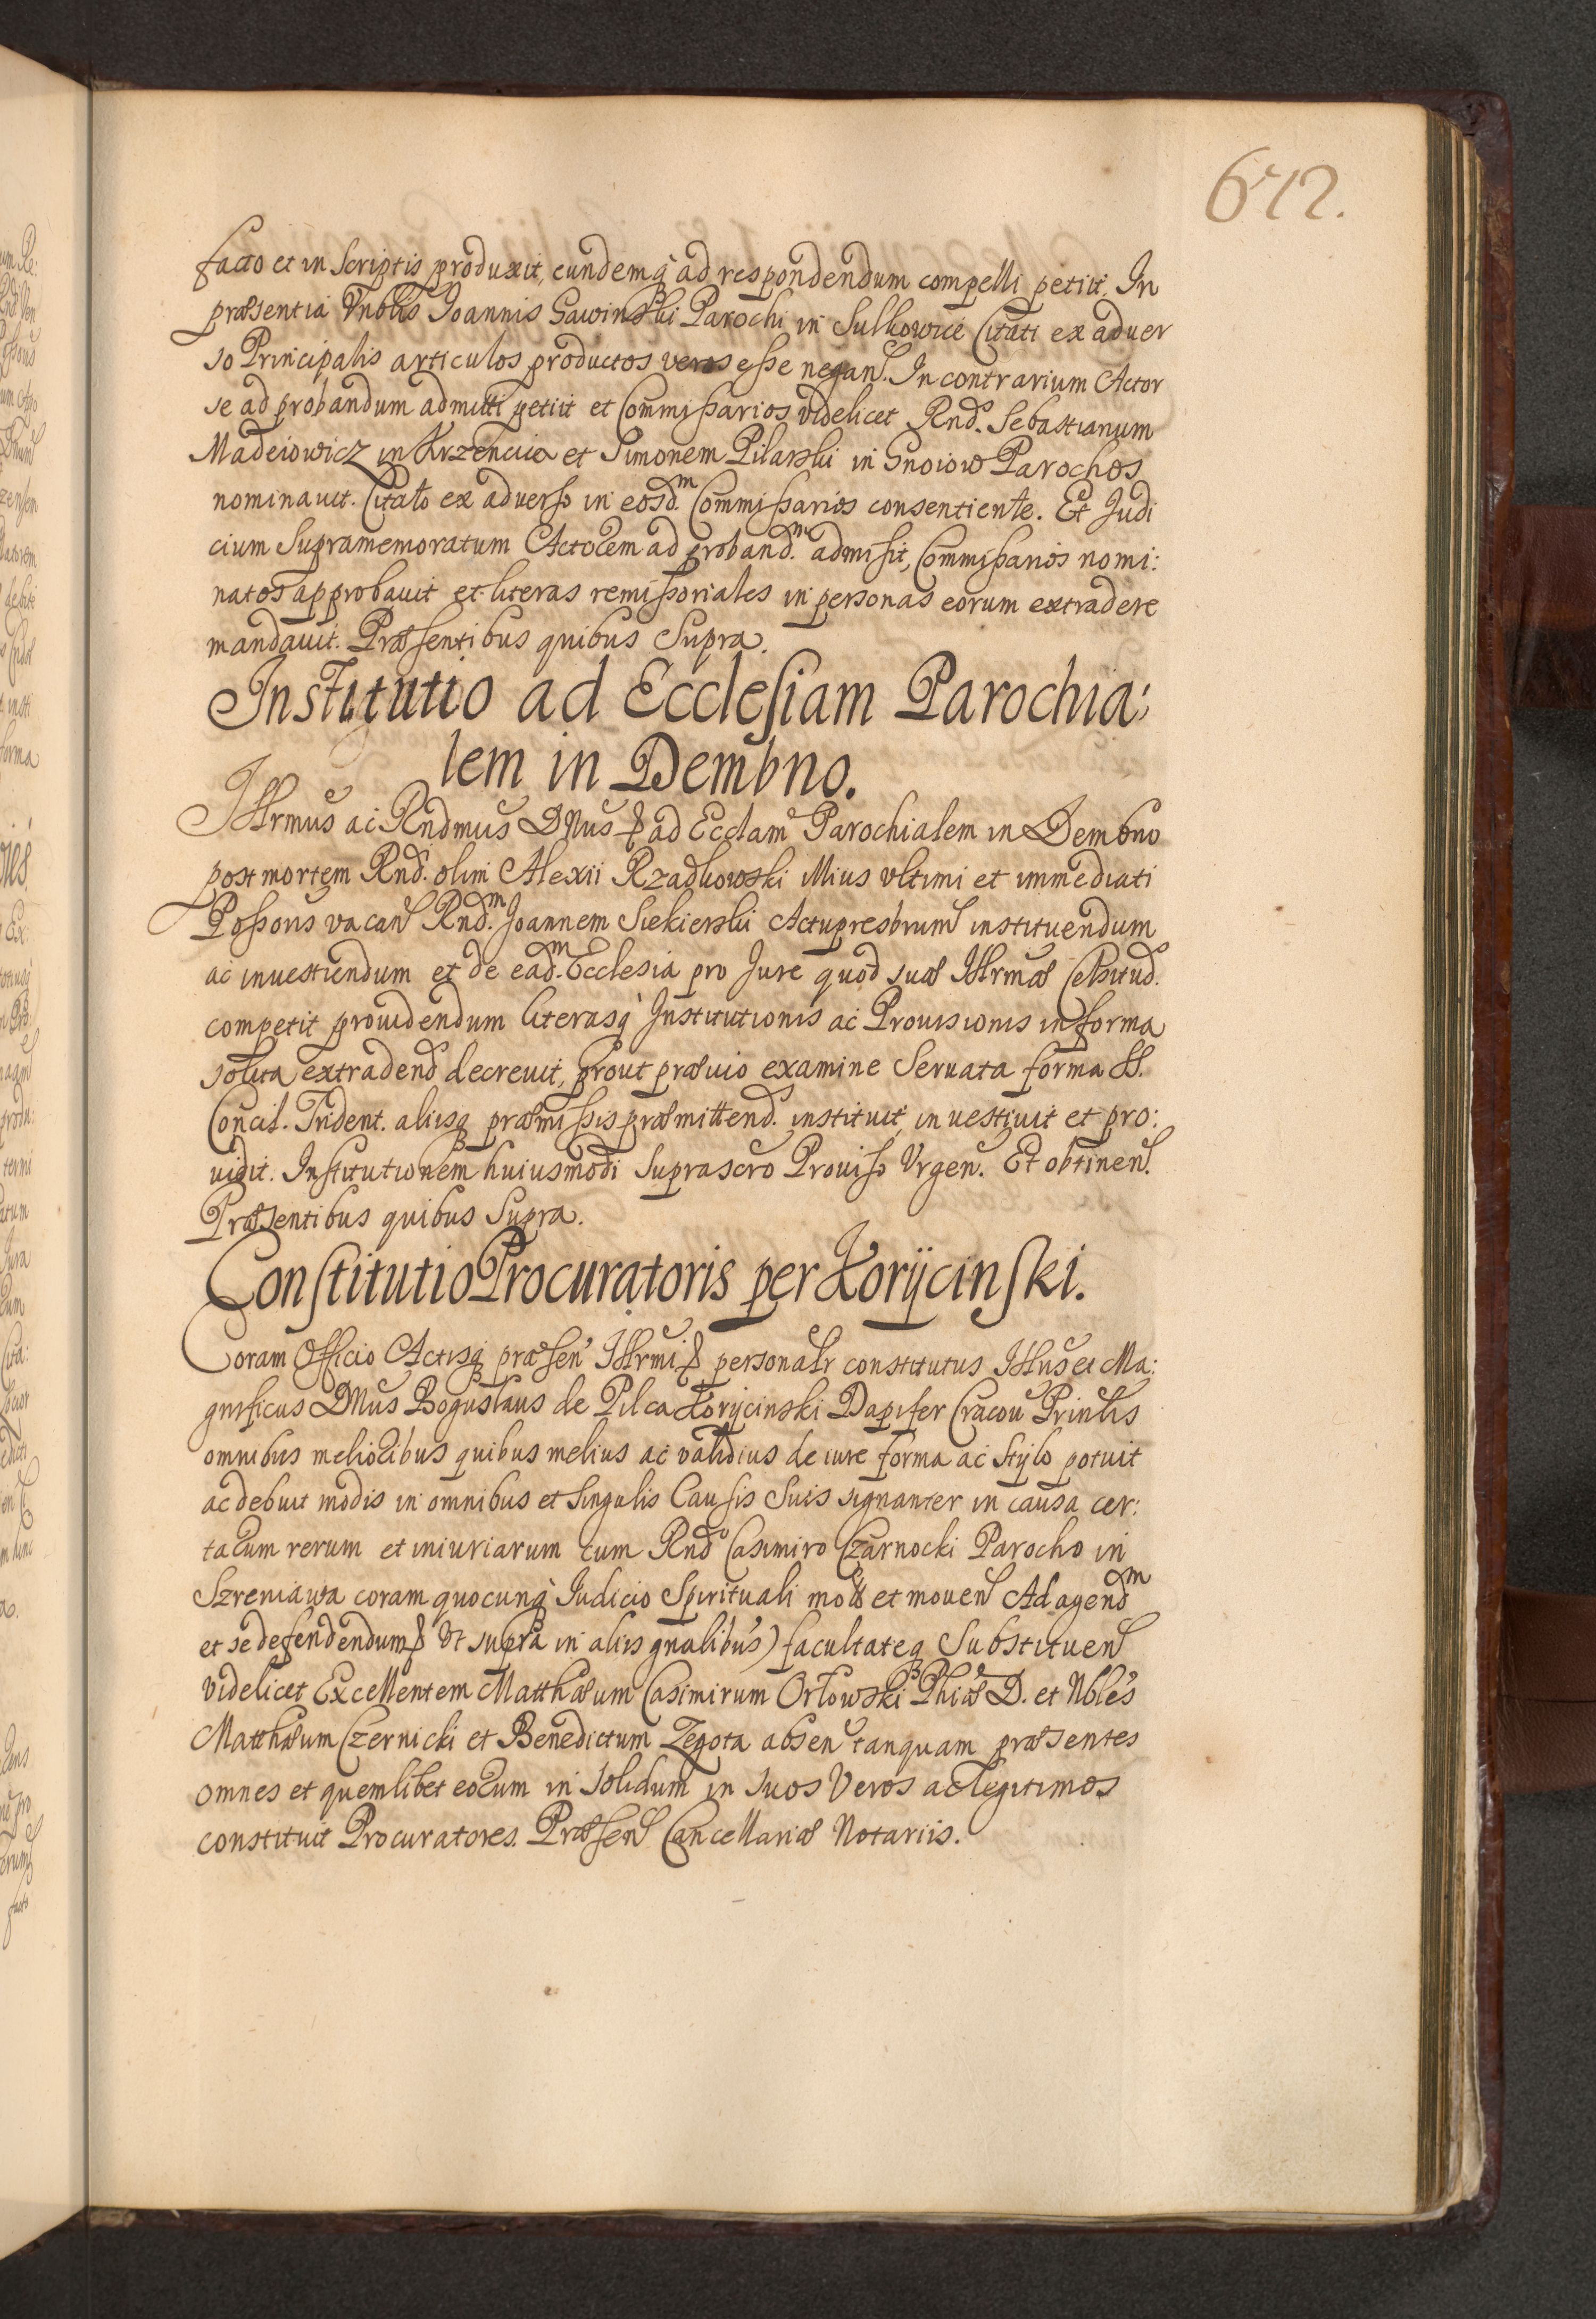 672.
facto et in Scriptis produxit, eundemq̀ ad respondendum compelli petiit. In
præsentia Vnblis Joannis Gawinski Parochi in Sulkowice Citati ex aduer
so Principalis articulos productos veros esse negan. In contrarium Actor
se ad probandum admitti petiit et Com̃issarios videlicet Rnd. Sebastianum
Madeiowicz in Krzencice et Simonem Pilarski in Gnoiow Parochos
nominauit. Citato ex aduerso in eosd.m Commissarios consentiente. Et Judi
cium Supramemoratum Actorem ad proband.m admisit, Commissarios nomi:
natos approbauit et literas remissoriales in personas eorum extradere
mandauit. Præsentibus quibus Supra.
Institutio ad Ecclesiam Parochia:
lem in Dembno.
Illrmus ac Rndmus DNus & ad Ecclam Parochialem in Dembno
post mortem Rnd. olim Alexii Rzadkowski illius vltimi et immediati
Possoris vacan Rnd.m Joannem Siekierski Actupresbrum instituendum
ac inuestiendum et de ead.m Ecclesia pro Jure quod suæ Illrmæ Celsitud.
competit prouidendum literasq̀ Institutionis ac Prouisionis in forma
solita extradend decreuit, prout præuio examine Seruata forma SS.
Concil. Trident. aliisq præmissis præmittend. instituit, inuestiuit et pro:
uidit. Institutionem huiusmodi Suprascro Prouiso Vrgen. Et obtinen.
Præsentibus quibus Supra.
Constitutio Procuratoris per Korijcinski.
Coram Officio Actisq præsen Illrmi & personalr constitutus Illus et Ma:
gnificus DNus Boguslaus de Pilca Korijcinski Dapifer Cracou Prinlis
omnibus melioribus quibus melius ac validius de iure forma ac Stijlo potuit
ac debuit modis in omnibus et Singulis Causis Suis signanter in causa cer:
tarum rerum et iniuriarum cum Rnd Casimiro Czarnocki Parocho in
Szreniawa coram quocunq̀ Iudicio Spirituali et mouen Ad agend.m
et se defendendum & Vt supra in aliis gnalibus) facultateq Substituen
videlicet Excellentem Matthæum Casimirum Orłowski Phiæ D. et Nbles
Matthæum Czernicki et Benedictum Zegota absen tanquam præsentes
omnes et quemlibet eorum in Solidum in suos Veros ac legitimos
constituit Procuratores. Præsen Cancellariæ Notariis.